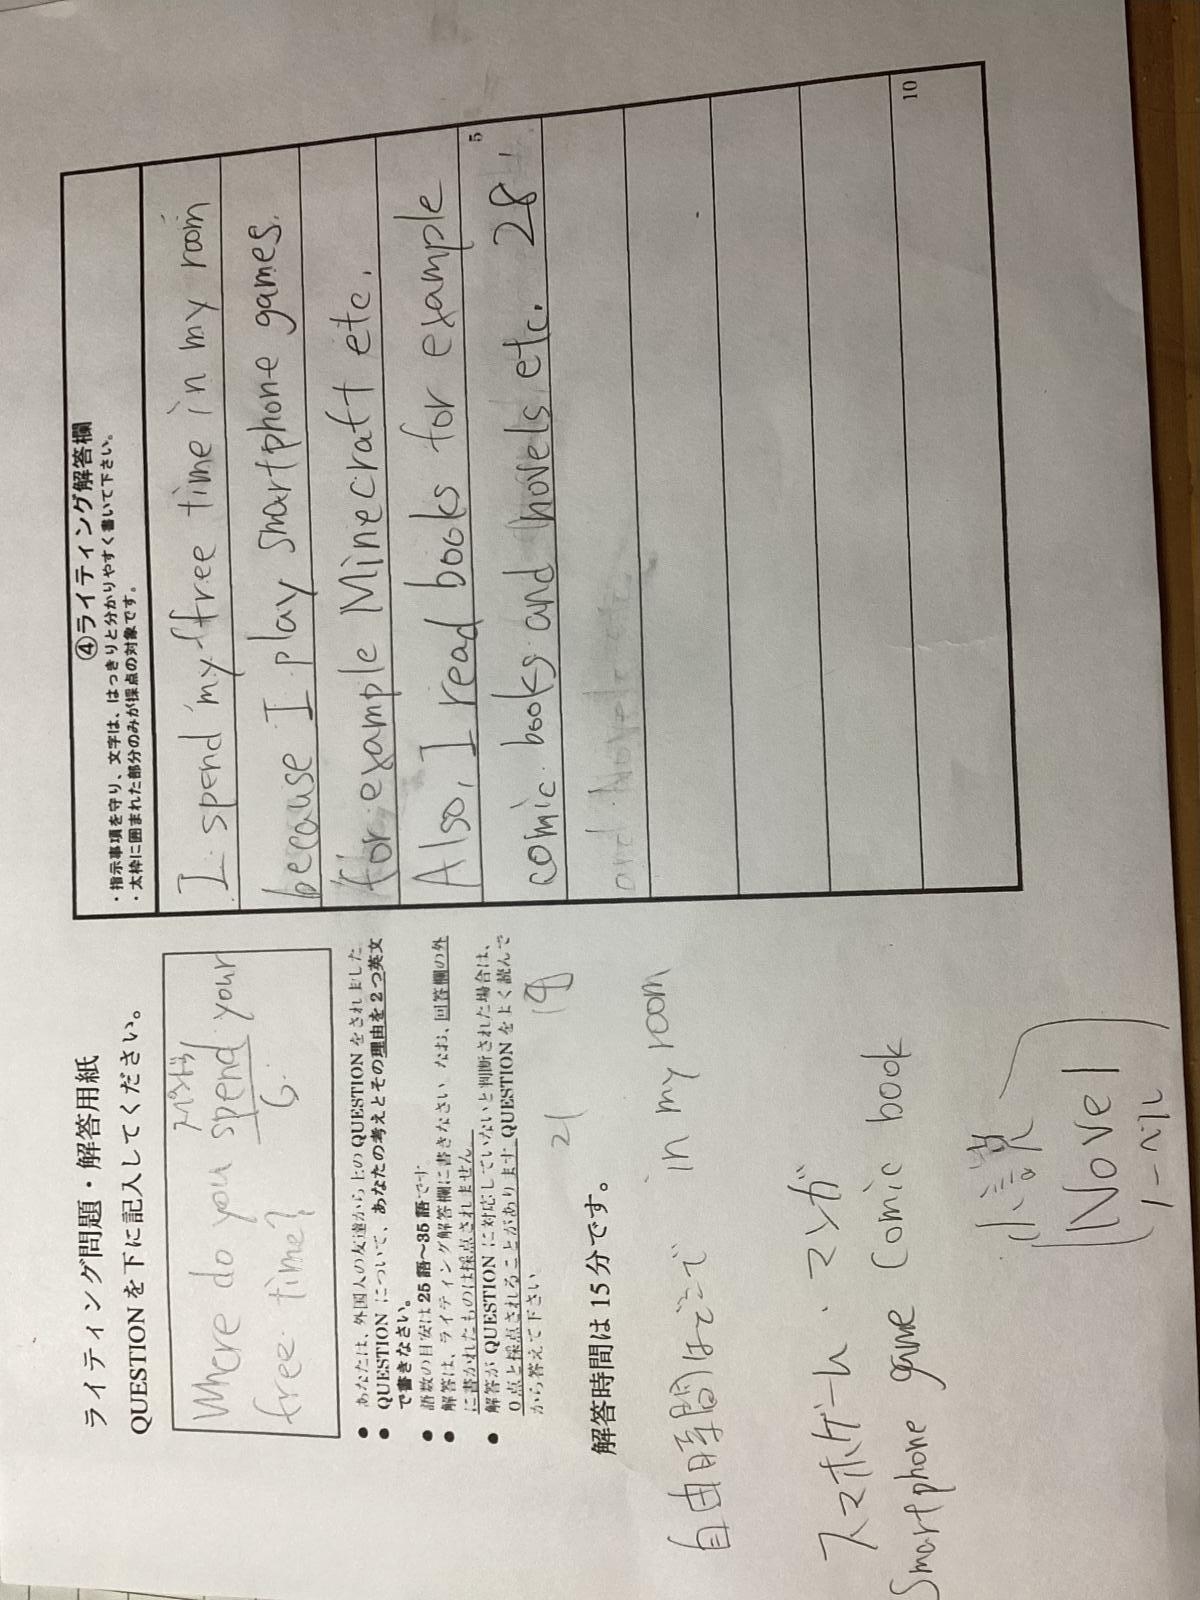 ライティング問題・解答用紙
QUESTIONを下に記入してください。
スペンド
Where do you spend your
free time?
● あなたは、外国人の友達から上のQUESTIONをされました
● QUESTIONについて、あなたの考えとその理由を2つ英文
で書きなさい。
● 語数の目安は25語〜35語です
● 解答は、ライティング解答欄に書きなさい なお、回答欄の外
に書かれたものは採点されません
● 解答がQUESTIONに対応していないと判断された場合は、
0点と採点されることがあります QUESTIONをよく読んで
から答えて下さい
21
解答時間は15分です。
自由時間はどこで in my room
スマホゲーム、マンガ
Smartphone game comic book
小説
Novel
ノーベル
④ライティング解答欄
・指示事項を守り、文字は、はっきりと分かりやすく書いて下さい。
・太枠に囲まれた部分のみが採点の対象です。
I spend my free time in my room
because I play smartphone games.
for example Minecraft etc.
Also, I read books for example
5
comic books and novels etc. 28
and Novels etc
10